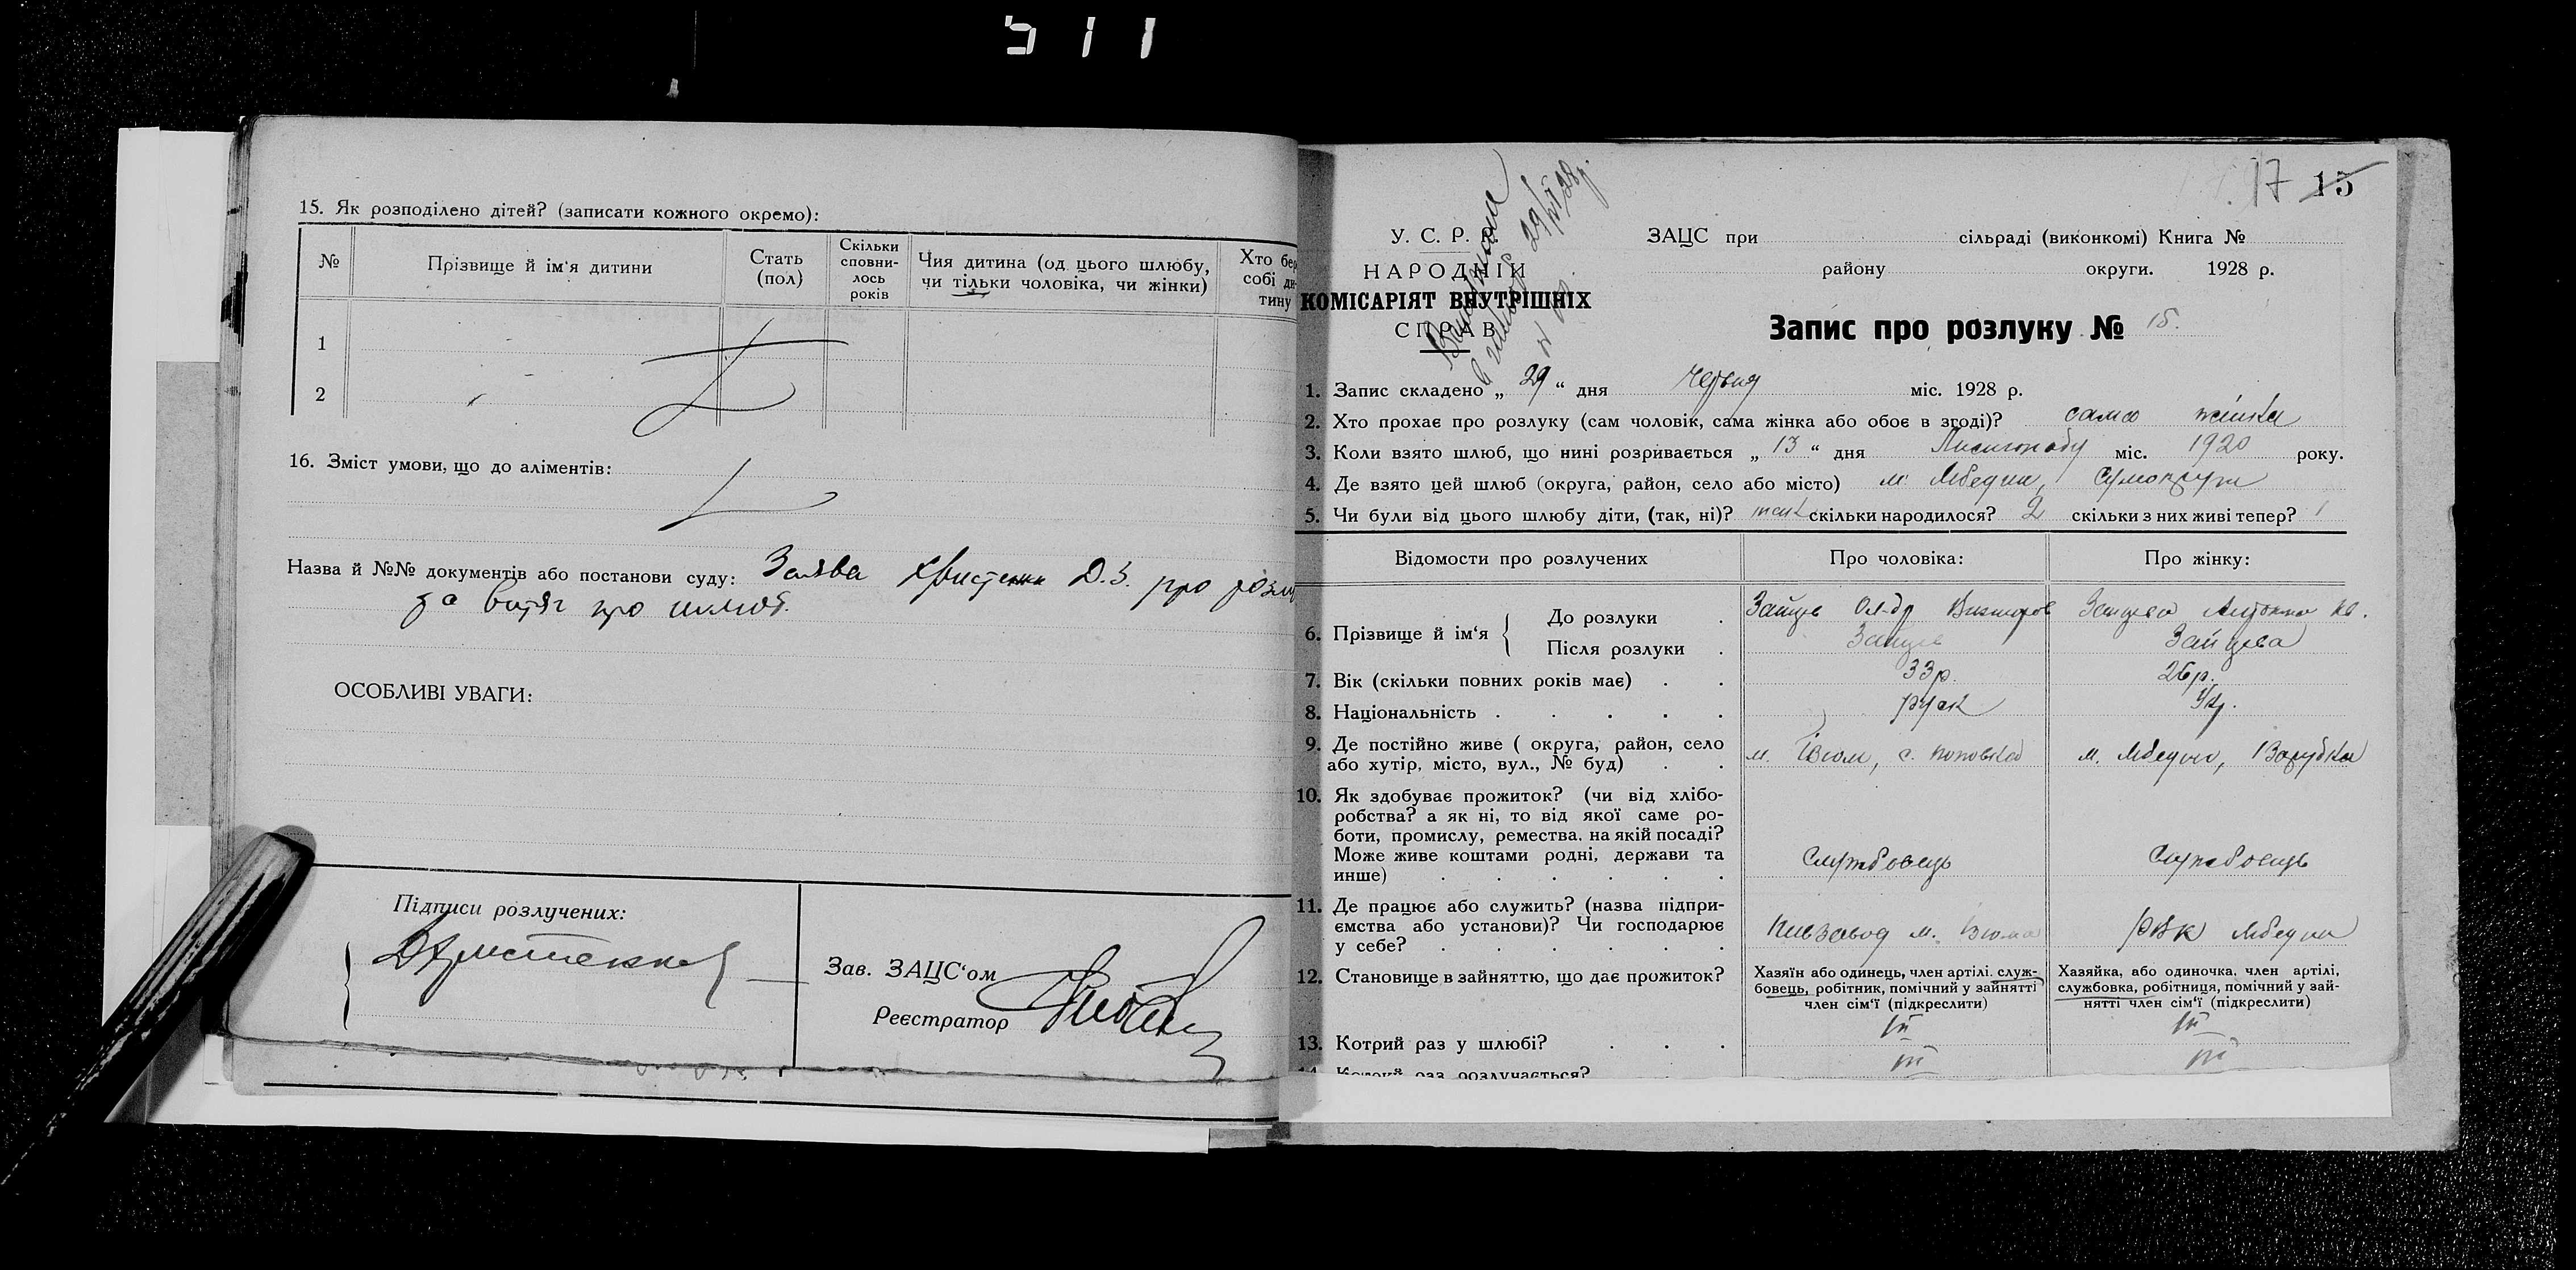 511
15. Як розподілено дітей? (записати кожного окремо):
№
Прізвище й ім‘я дитини
Стать (пол)
Скільки сповни-
лось
років
Чия дитина (од цього шлюбу,
чи тільки чоловіка, чи жінки)
Хто бер
собі ди-
тину
1
2
16. Зміст умови, що до аліментів:
Назва й №№ документів або постанови суду: Заява Христенко Д.З. про розлу
та витяг про шлюб.
ОСОБЛИВІ УВАГИ:
Підписи розлучених:
ДХристенко
Зав. ЗАЦС‘ом
Реєстратор
17 15
У. С. Р. Р.
НАРОДНІЙ
КОМІСАРІЯТ ВНУТРІШНІХ
СПРАВ
29/VI/28р.
ЗАЦС при сільраді (виконкомі) Книга №
району округи. 1928 р.
Запис про розлуку № 15.
1. Запис складено „ 29 “ дня червня міс. 1928 р.
2. Хто прохає про розлуку (сам чоловік, сама жінка або обоє в згоді)? сама жінка
3. Коли взято шлюб, що нині розривається „ 13 “ дня Листопаду міс. 1920 року.
4. Де взято цей шлюб (округа, район, село або місто) м. Лебедин, Сумокруги
5. Чи були від цього шлюбу діти, (так, ні)? так скільки народилося? 2 скільки з них живі тепер? 1
Відомости про розлучених
Про чоловіка:
Про жінку:
6. Прізвище й ім‘я
До розлуки
Зайцев Ол-др Викторов
Зайцева
Після розлуки
Зайцев
Зайцева
7. Вік (скільки повних років має)
33р.
26р.
8. Національність
руск
Укр.
9. Де постійно живе ( округа, район, село
або хутір, місто, вул., № буд)
м. Ізюм, с. Поповка
м. Лебедин,
10. Як здобуває прожиток? (чи від хлібо-
робства? а як ні, то від якої саме ро-
боти, промислу, ремества. на якій посаді?
Може живе коштами родні, держави та
инше)
Службовець
Службовець
11. Де працює або служить? (назва підпри-
ємства або установи)? Чи господарює
у себе?
Пивзавод м. Ізюма
РВК Лебедин
12. Становище в зайняттю, що дає прожиток?
Хазяїн або одинець, член артілі. служ-
бовець, робітник, помічний у зайнятті
член сім‘ї (підкреслити)
Хазяйка, або одиночка, член артілі,
службовка, робітниця, помічний у зай-
нятті член сім‘ї (підкреслити)
13. Котрий раз у шлюбі?
14. Котрий раз розлучається?